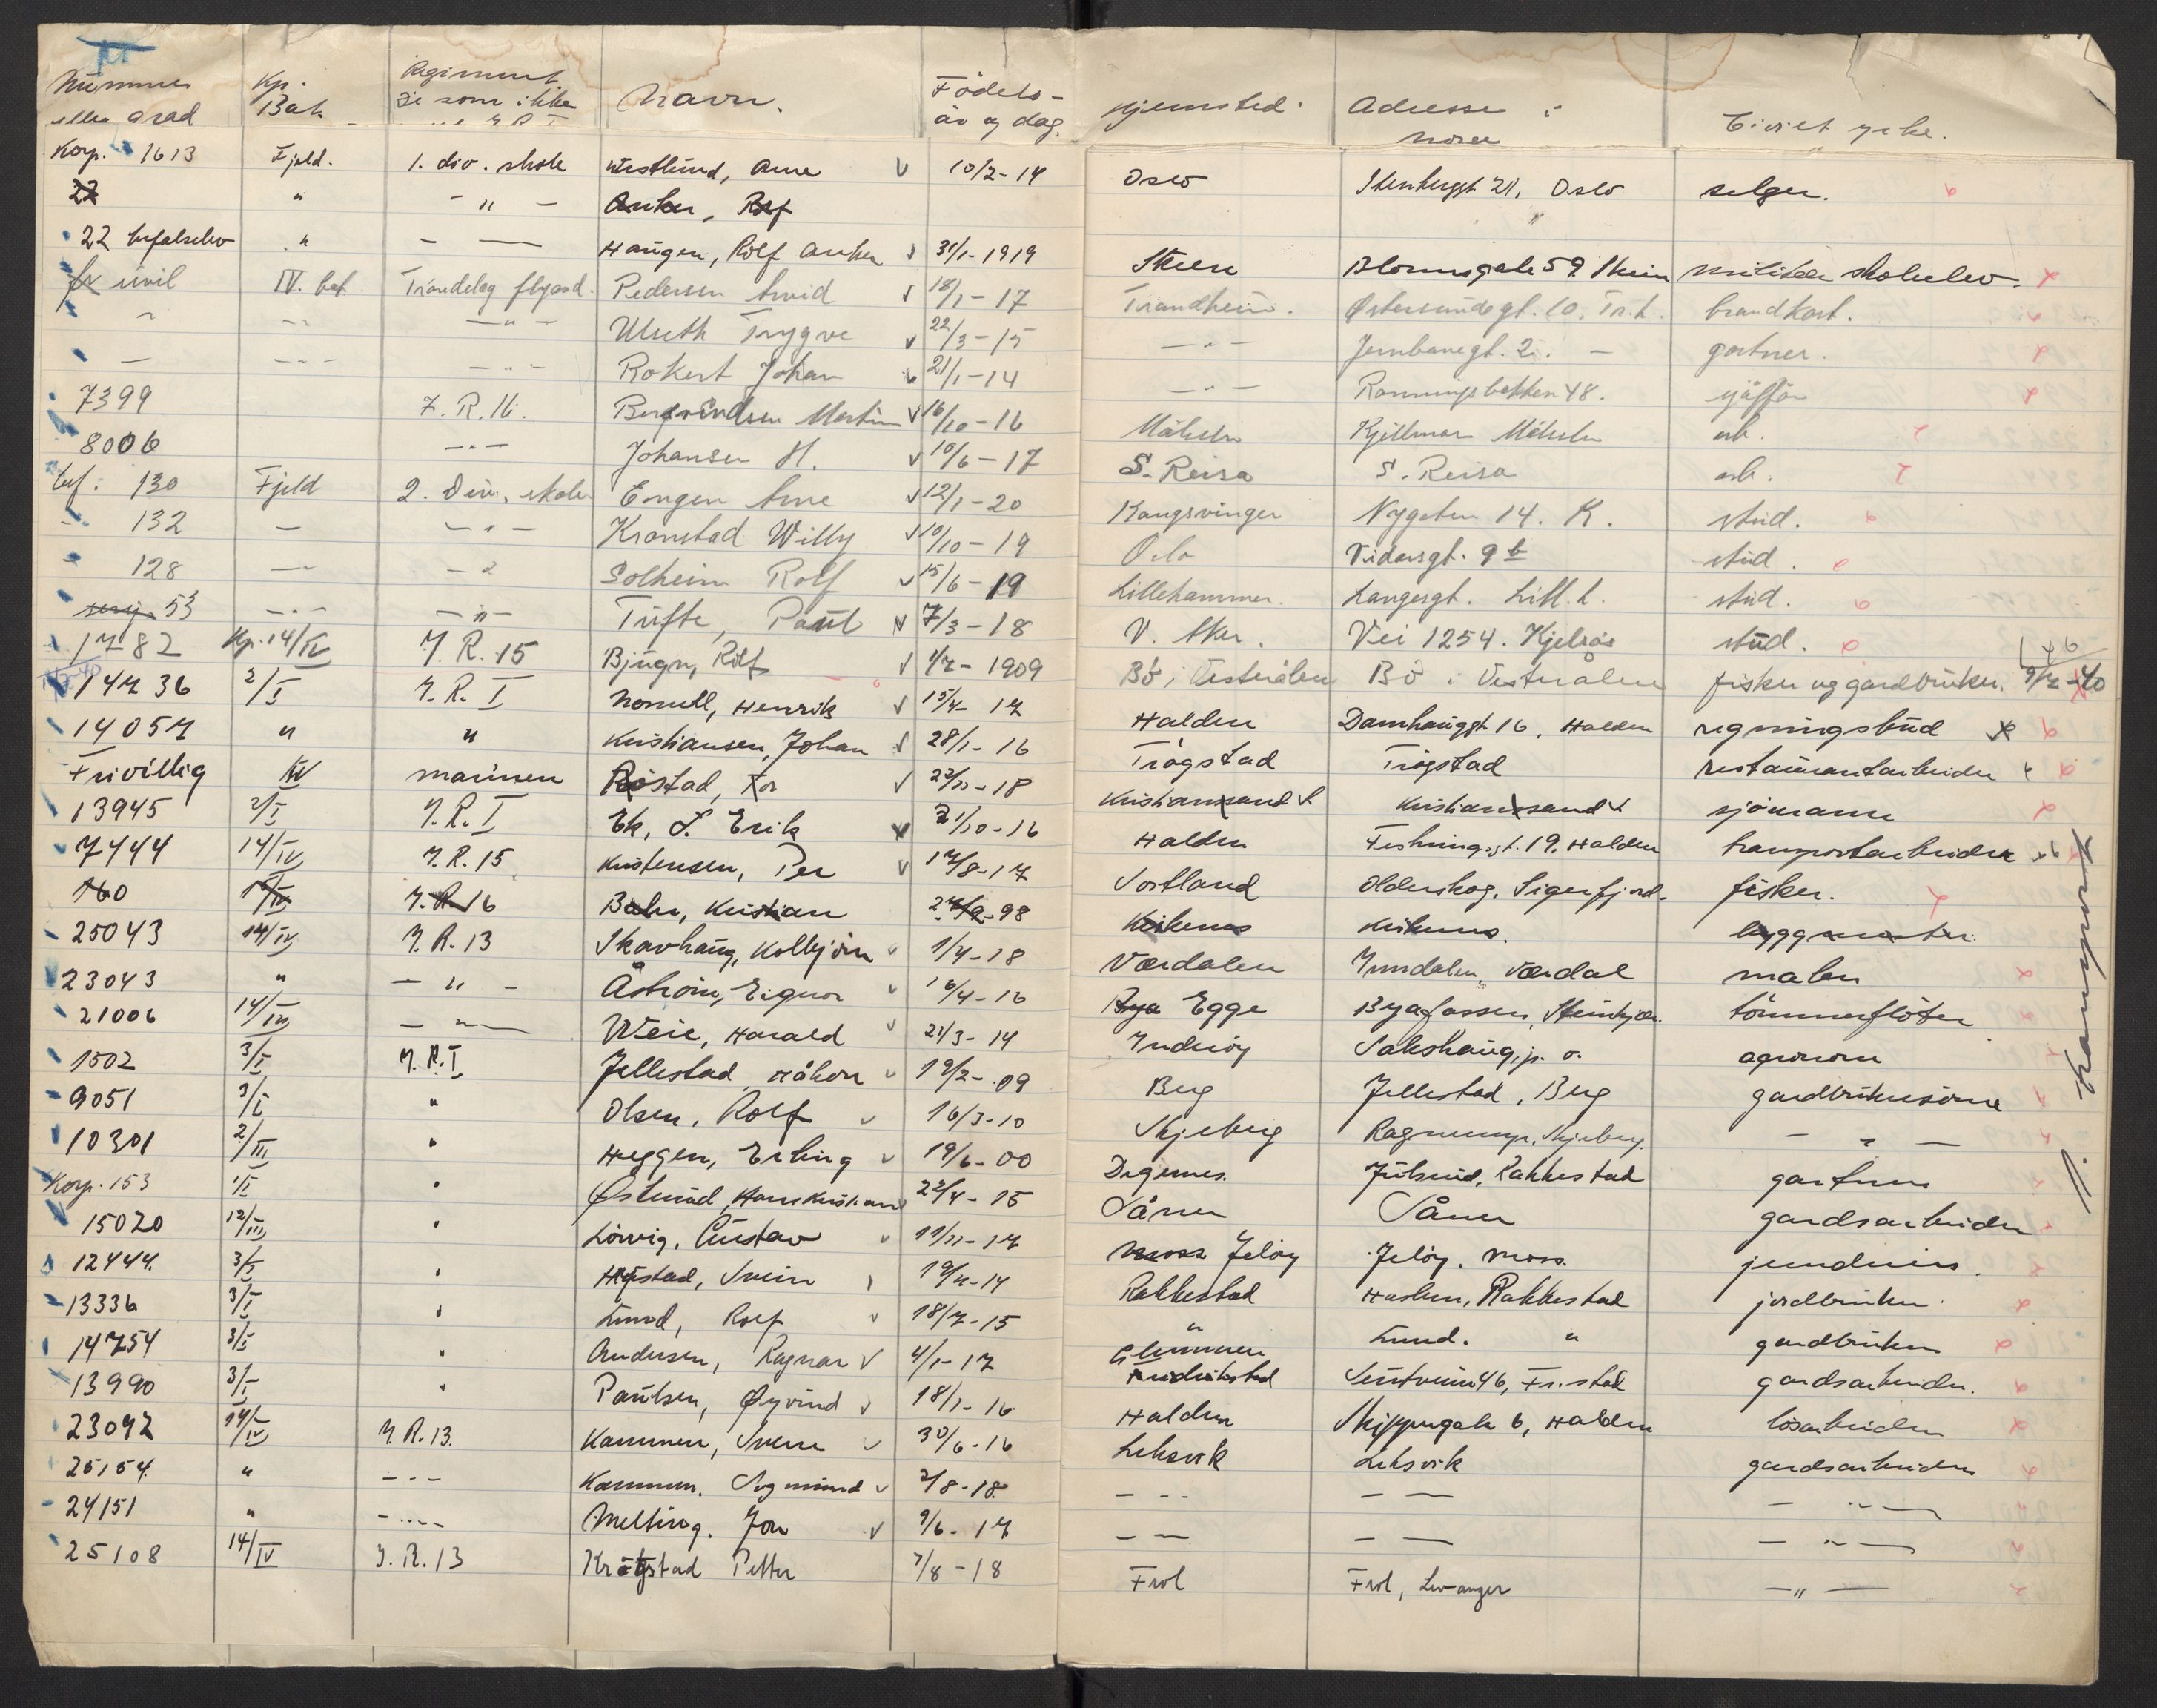 Nummer eller grad | Kp. Bat. | Regiment de som ikke | Navn. | Födels- år og dag. | Hjemsted. | Adresse i Norge | Civilt yrke.
Korp. 1613 | Fjeld. | 1. div. skole | Westlund, Arne v | 10/2-14 | Oslo | Stenbergst 21, Oslo | selger.
22 | " | - " - | Anker, Rolf | "
22 befalselev | " | - — | Haugen, Rolf Anker v | 31/1-1919 | Skien | Blomsgate 59. Skien | militær skoleelev.
sivil | IV. bat | Trøndelag flyavd. | Pedersen Arvid v | 18/1-17 | Trondheim. | Østersundsgt. 10. Tr.h. | brandkost.
" | - " - | - " - | Uluth Trygve v | 22/3-15 | - " - | Jernbanegt. 2. - | gartner.
— | - " - | - " - | Rokert Johan v | 21/1-14 | - " - | Ronningsbakken 48. | sjåffør
7399 | I.R. 16. | Bergsvendsen Martin v | 16/10-16 | Målselv | Kjellmo Målselv | arb.
8006 | - " - | Johansen H. v | 10/6-17 | S. Reisa | S. Reisa | arb.
bef. 130 | Fjeld | 2. Div. skole | Engen Arne v | 12/1-20 | Kongsvinger | Nygaten 14. K. | stud.
- 132 | — | - " - | Kronstad Willy v | 10/10-19 | Oslo | Vidarsgt. 9 b | stud.
128 | - " - | - " - | Solheim Rolf v | 15/6-19 | Lillehammer. | Langesgt. Lill.h. | stud.
53 | - " - | - " - | Tufte, Paul v | 7/3-18 | V. Aker. | Vei 1254. Kjelsås | stud.
1782 | Kp. 14/IV | I.R. 15 | Bjugn, Rolf v | 1/7-1909 | Bö i Vesterålen | Bö i Vesterålen | fisker og gardbruker. 9/7-40
14736 | 2/I | I.R. I | Norsell, Henrik v | 15/4-17 | Halden | Damhauggt 16, Halden | regningsbud
14057 | " | " | Kristiansen, Johan v | 28/1-16 | Trögstad | Trögstad | restaurantarbeider
Frivillig | IV | marinen | Röstad, Tor v | 22/11-18 | Kristiansand S | Kristiansand S | sjömann
13945 | 2/I | I.R. I | Ek, S. Erik v | 21/10-16 | Halden | Festningsgt. 19. Halden | transportarbeider
7444 | 14/IV | I.R. 15 | Kristensen, Per v | 17/8-17 | Sortland | Olderskog, Sigerfjord. | fisker.
160 | 14/IV | I.R. 16 | Bahr, Kristian | 27/9-98 | Kirkenes | Kirkenes. | byggmester.
25043 | 14/IV | I.R. 13 | Skavhaug, Kolbjörn v | 1/4-18 | Værdalen | Inndalen, Værdal | maler
23043 | " | - " - | Åström, Eignor v | 16/4-16 | Egge | Byafossen, Steinkjer. | tömmerflöter
21006 | 14/IV | - " - | Weie, Harald v | 21/3-14 | Inderöy | Sakshaug, p. o. | agronom
1502 | 3/I | I.R. I | Jellestad, Håkon v | 19/2-09 | Berg | Jellestad, Berg | gardbrukersönn
9051 | 3/I | " | Olsen, Rolf v | 16/3-10 | Skjeberg | Skjeberg. | - " -
10301 | 2/III | " | Heggen, Erling v | 19/6-00 | Degernes. | Rakkestad | gartner
Korp. 153 | 1/I | " | Østlund, Hans Kristian | 22/4-15 | Såner | Såner | gardsarbeider
15020 | 12/III | " | Lörvig, Gustav v | 11/11-17 | Jelöy | Jelöy. Moss. | jerndreier.
12444. | 3/I | " | Høstad, Svein v | 19/4-14 | Rakkestad | Haslem, Rakkestad | jordbruker.
13336 | 3/I | " | Lund, Rolf v | 18/7-15 | " | Lund. " | gardbruker
14754 | 3/I | " | Andersen, Ragnar v | 4/1-17 | Glemmen Fredrikstad | 46, Fr.stad | gardsarbeider.
13990 | 3/I | " | Paulsen, Øyvind v | 18/1-16 | Halden | Skippergate 6, Halden | lösarbeider
23092 | 14/IV | I.R. 13. | Kammen, Sverre v | 30/6-16 | Leksvik | Leksvik | gardsarbeider
25154. | " | - " - | Kammen. Sigmund v | 2/8-18. | - " - | - — | - " -
24151 | " | - " - | Melting. Jon v | 9/6-17 | - — | - — | - " -
25108 | 14/IV | I.R. 13 | Krogstad Petter | 7/8-18 | Frol | Frol, Levanger | - " -